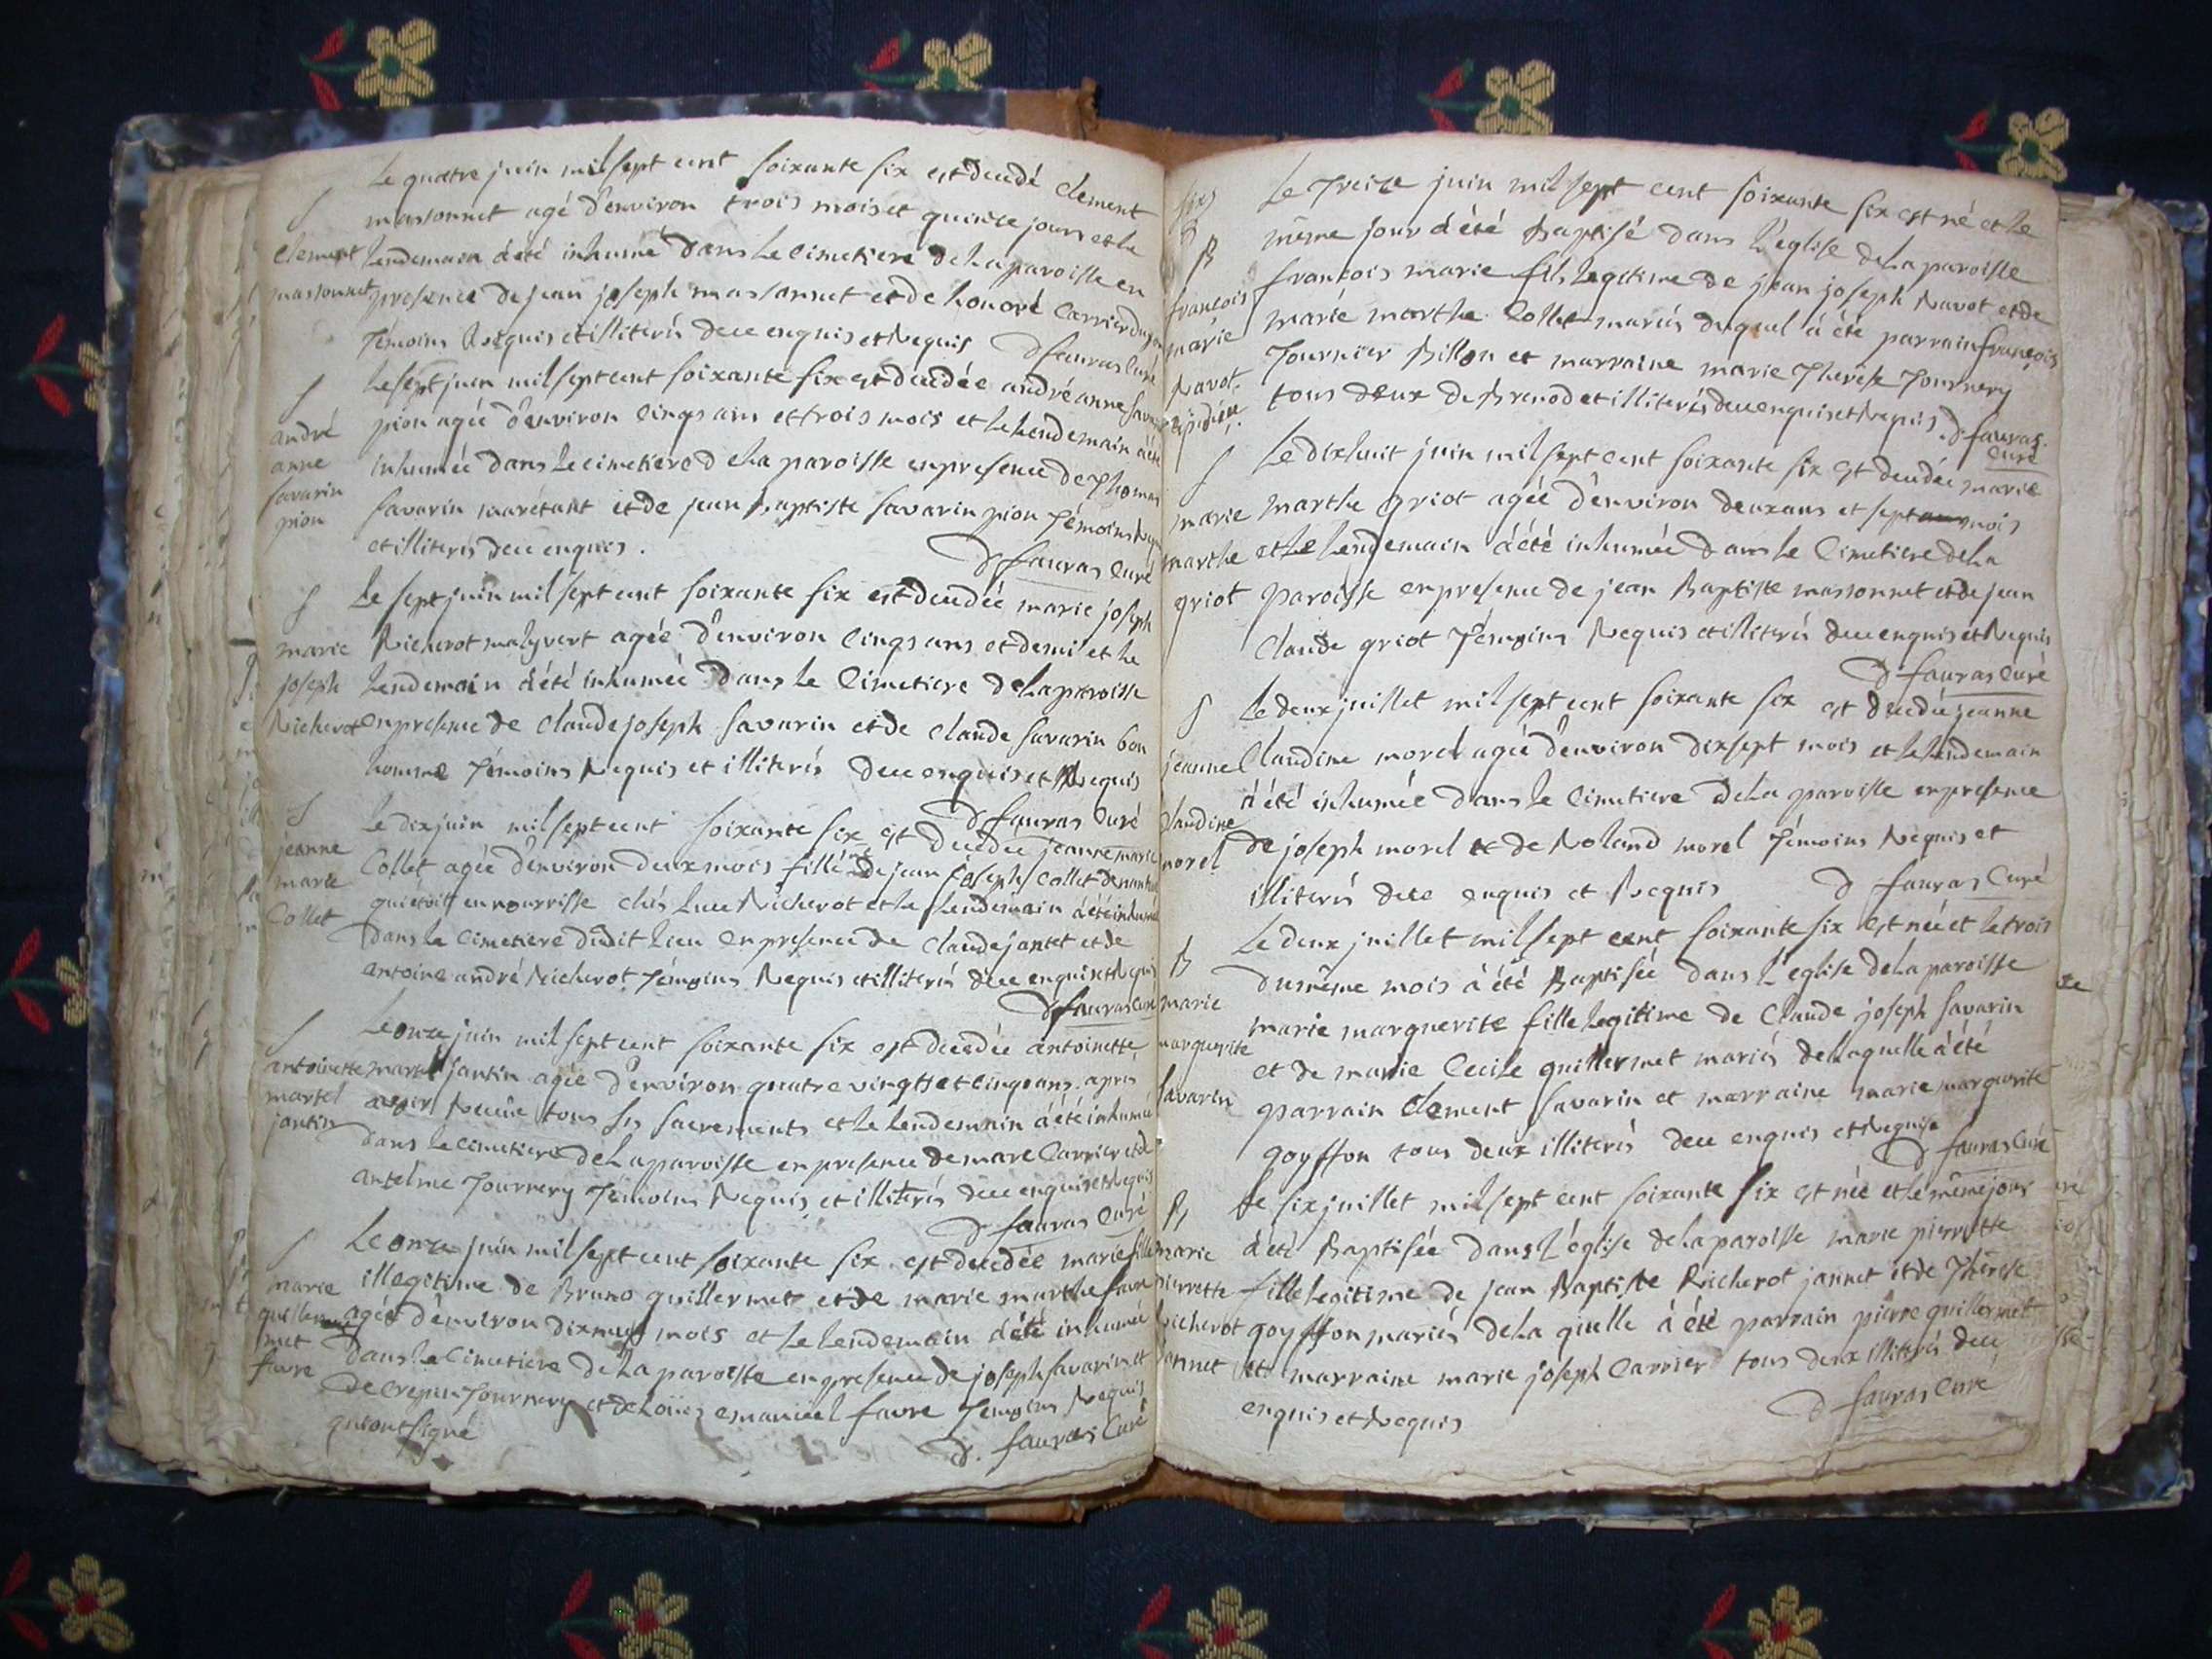 Le quatre juin mil sept cent soixante six est decedé clement
massonnet agé d'environ trois mois et quinze jours et le
clement lendemain à été inhumé dans le cimetiere de la paroisse en
massonnet presence de jean joseph massonnet et de honoré Carrier
témoins Requis et illiterés de ce enquis et Requis D fauras Curé
Le sept juin mil sept cent soixante six est decedée andré anne
pion agée d'environ cinqs ans et trois mois et le lendemain à été
andré
anne
savarin
pion
inhumée dans le cimetiere de la paroisse en presence de Thomas
savarin marétant et de jean Baptiste savarin pion témoins
et illiterés de ce enquis .
D fauras Curé
Le sept juin mil sept cent soixante six est decedée marie joseph
marie Richerot malyvert agée d'environ cinqs ans et demi et le
joseph lendemain à été inhumée dans le Cimetiere de la paroisse
Richerot en presence de Claude joseph savarin et de Claude savarin bon
homme témoins Requis et illiterés de ce enquis et Requis
D fauras Curé
Le dix juin mil sept cent soixante six est decedée jeanne marie
jeanne
marie
Collet
Collet agée d'environ deux mois fille de jean joseph Collet
qui étoit en nourrisse chés Luce Richerot et le lendemain à été inhumée
dans le cimetiere dudit lieu en presence de Claude jantet et de
antoine andré Richerot témoins Requis et illiterés de ce enquis et Requis
D fauras Curé
Le onze juin mil sept cent soixante six est decedée antoinette
antoinette martel jantin agée d'environ quatre vingts et cinqs ans apres
martel
jantin
avoir Recue tous ses sacrements et le lendemain à été inhumé
dans le cimetiere de la paroisse en presence de marc Carrier et de
antelme Tournery témoins Requis et illiterés de ce enquis et Requis
D fauras Curé
Le onze juin mil sept cent soixante six est decedée marie fille
marie illegitime de Bruno guillermet et de marie marthe favre
guillermet
favre
agée d'environ mois et le lendemain à été inhumée
dans le Cimetiere de la paroisse en presence de joseph savarin et
de Crepin Tournery et de Loüis emanuel favre témoins Requis
qui ont signé
D. fauras Curé
Le Treize juin mil sept cent soixante six est né et le
même jour à été Baptisé dans l'eglise de la paroisse
françois marie fils legitime de jean joseph Ravot et de
françois
marie
Ravot
marie marthe Collet mariés duquel à été parrain françois
Tournier Billon et marraine marie Therèse Tournery
tous deux de Brenod et illiterés de ce enquis et Requis. D fauras
Curé
Le dixhuit juin mil sept cent soixante six est decedée marie
marie marthe griot agée d'environ deux ans et sept ans mois
marthe et le lendemain à été inhumée dans le Cimetiere de la
griot paroisse en presence de jean Baptiste massonnet et de jean
Claude griot témoins Requis et illiterés de ce enquis et Requis
D fauras Curé
Le deux juillet mil sept cent soixante six est decedée jeanne
jeanne Claudine morel agée d'environ dixsept mois et le lendemain
à été inhumée dans le Cimetiere de la paroisse en presence
Claudine
morel
de joseph morel et de Roland morel témoins Requis et
illiterés de ce enquis et Requis D fauras Curé
Le deux juillet mil sept cent soixante six est née et le trois
B
du même mois à été Baptisée dans l'eglise de la paroisse
marie
marguerite
savarin
marie marguerite fille legitime de Claude joseph savarin
et de marie Cecile guillermet mariés de laquelle à été
parrain Clement savarin et marraine marie marguerite
goyffon tous deux illiterés de ce enquis et Requis
D fauras Curé
B Le six juillet mil sept cent soixante six est née et le même jour
marie à été Baptisée dans l'église de la paroisse marie pierrette
pierrette fille legitime de jean Baptiste Richerot jannet et de Thérèse
Richerot goyffon mariés de la quelle à été parrain pierre guillermet
jannet et marraine marie joseph Carrier tous deux illiterés de ce
enquis et Requis D fauras Curé